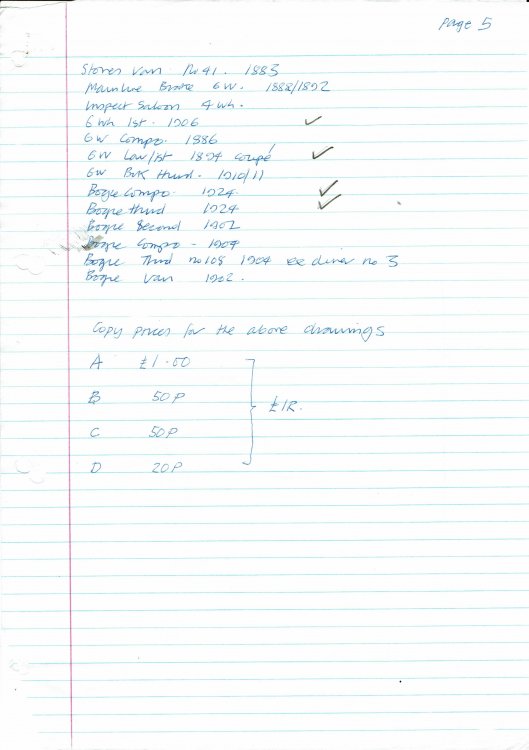 Page 5
Stores Van No 41. 1883
Mainline Brake 6W. 1888/1892
Inspect Saloon 4 wh.
6 Wh 1st. 1906 ✓
6W Compo. 1886
6W Lav/1st 1894 coupé ✓
6W BrK third. 1910/11
Bogie Compo. 1924 ✓
Bogie third 1924 ✓
Bogie Second 1902
Bogie Compo - 1904
Bogie Third no 108 1904 ex diner no 3
Bogie Van 1902.
Copy prices for the above drawings
A £1.00
B 50P
C 50P
D 20P
£IR.